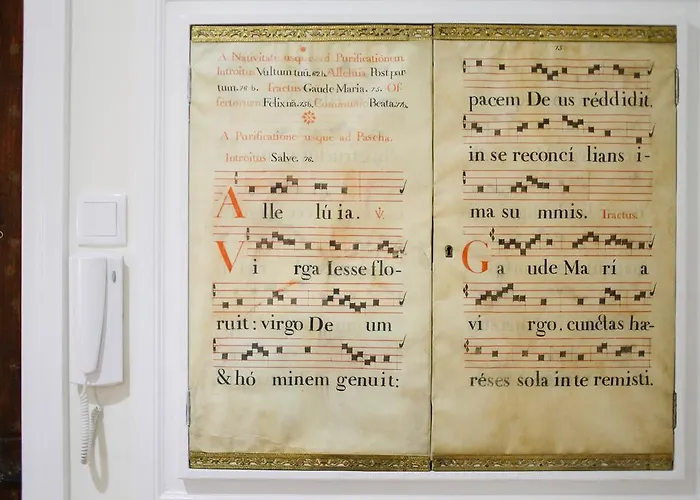 A Nativitate usque ad Purificationem
Introitus Vultum tuũ. 62 b. Alleluia Post par
tum. 76 b. Tractus Gaude Maria. 75. Of-
fertorium Felix
A Purificatione usque ad Pascha.
Introitus Salve. 76.
A lle lú ia. ℣.
Vi rga Iesse flo-
ruit: virgo De um
& hó minem genuit:
pacem De us réddidit.
in se reconcí lians i-
ma su mmis. Tractus.
Ga ude Ma rí a
vi rgo. cunctas hæ-
réses sola in te remisti.